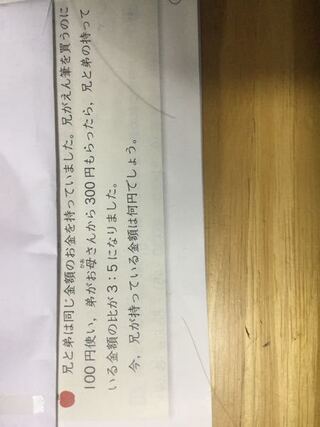 兄と弟は同じ金額のお金を持っていました。兄がえん筆を買うのに
100円使い，弟がお母さんから300円もらったら，兄と弟の持って
いる金額の比が3：5になりました。
今，兄が持っている金額は何円でしょう。